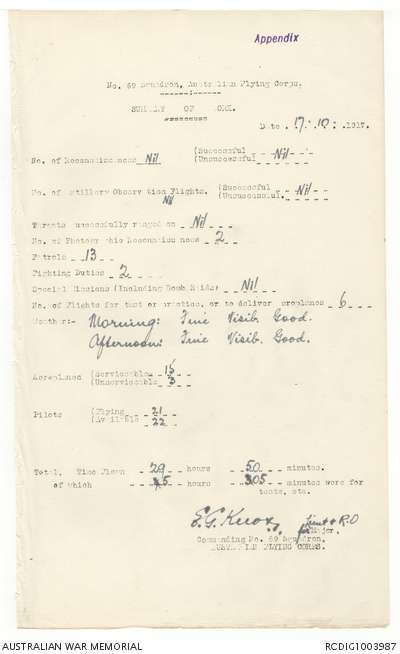 Appendix
No. 69 Squadron, Australian Flying Corps.
SUMMARY OF WORK.
Date. 17. 10. 1917.
No. of Reconnaissances Nil (Successful Nil
(Unsuccessful
No. of Artillery Observation Flights. (Successful Nil
Nil (Unsuccessful.
Targets successfully ranged on Nil
No. of Photographic Reconnaissances 2
Patrols 13
Fighting Duties 2
Special Missions (Including Bomb Raids) Nil
No. of Flights for test or practice, or to deliver aeroplanes 6
Weather:- Morning: Fine Visib. Good.
Afternoon: Fine Visib. Good.
Aeroplanes (Serviceable 15
(Unserviceable 3
Pilots (Flying 21
(Available 22
Total, Time Flown 29 hours 50 minutes.
of which 5 hours 305 minutes were for
tests, etc.
E.G. Knox, Lieut & R.O
for Major.
Commanding No. 69 Squadron.
AUSTRALIAN FLYING CORPS.
AUSTRALIAN WAR MEMORIAL
RCDIG1003987